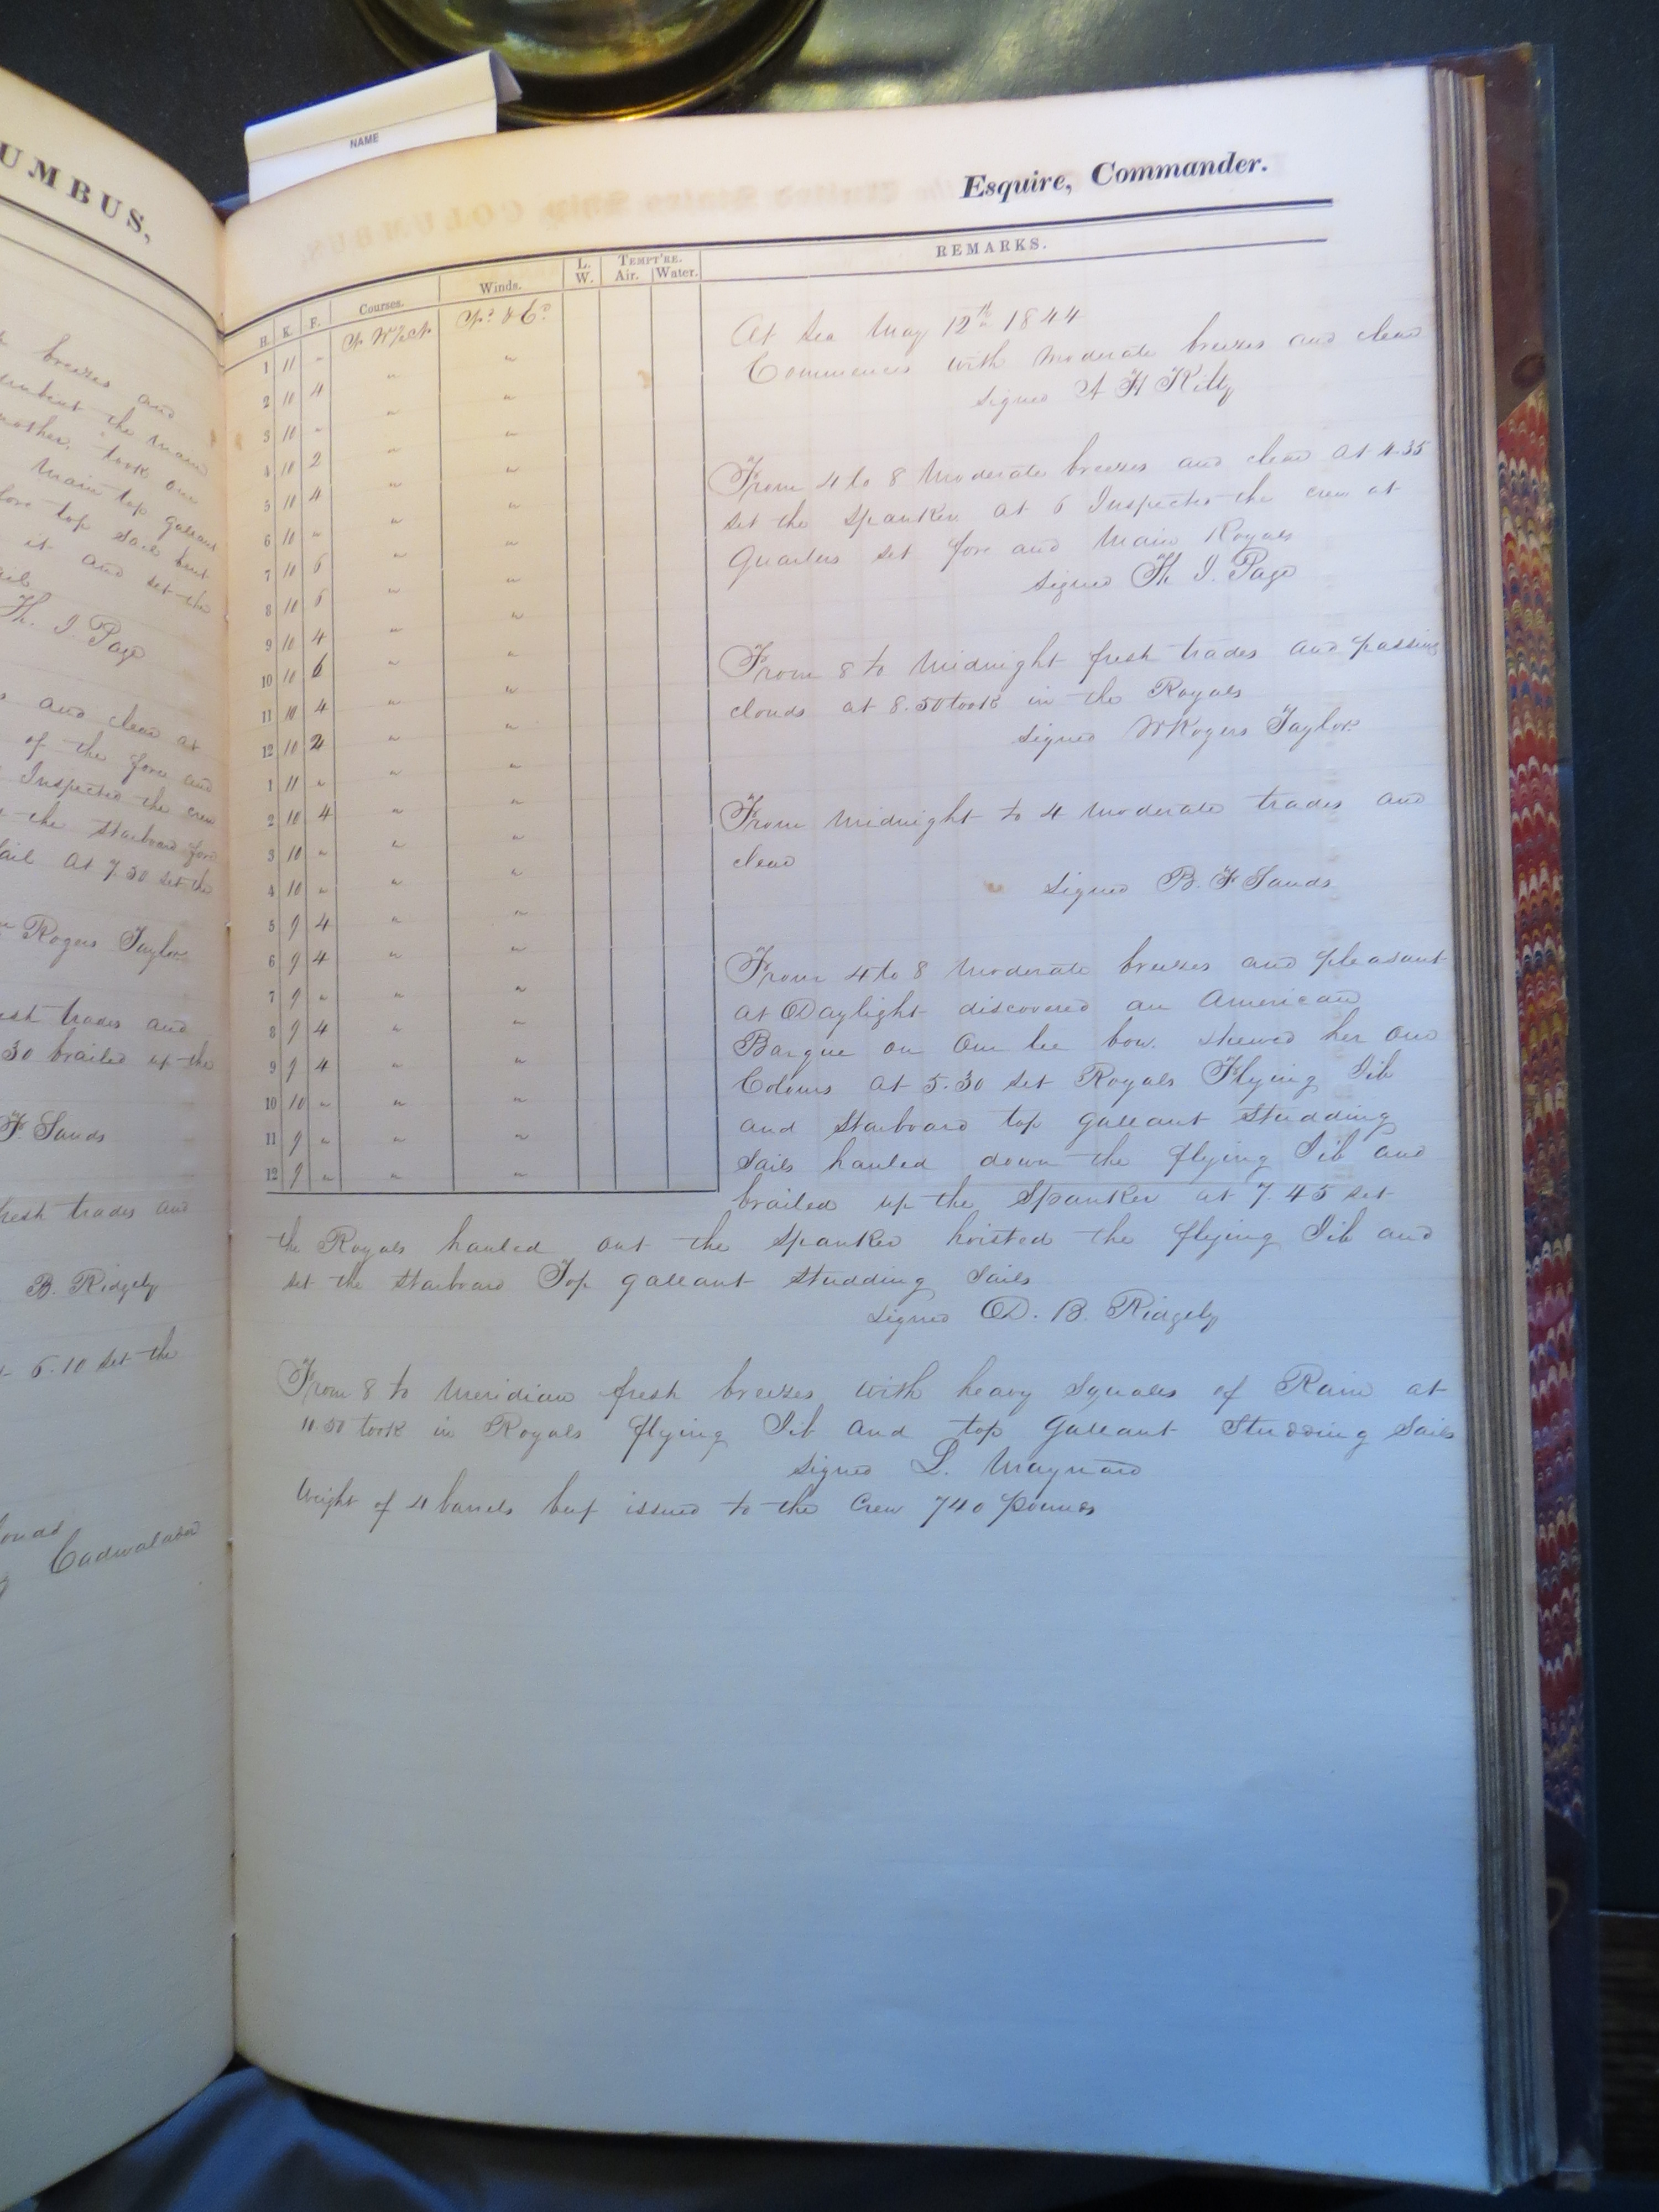 UMBUS,
breezes and
unbent the main
another, took our
main top gallant
fore top sail bent
it and set the
Th. J. Page
and clear at
of the fore and
Inspected the crew
the starboard fore
sail at 7.30 set the
Rogers Taylor
trades and
30 brailed up the
F Sands
fresh trades and
B. Ridgely
6.10 set the
Cadwalader
NAME
Esquire, Commander.
H. K. F. Courses. Winds. L. W. TEMPT'RE. Air. Water. REMARKS.
1 11 " N. W. by N. Nd & Ed
2 10 4 " "
3 10 " " "
4 10 2 " "
5 10 4 " "
6 10 " " "
7 10 6 " "
8 10 6 " "
9 10 4 " "
10 10 6 " "
11 10 4 " "
12 10 2 " "
1 11 " " "
2 10 4 " "
3 10 " " "
4 10 " " "
5 9 4 " "
6 9 4 " "
7 9 " " "
8 9 4 " "
9 9 4 " "
10 10 " " "
11 9 " " "
12 9 " " "
At Sea May 12th 1844
Commences with moderate breezes and clear
Signed A H Kilty
From 4 to 8 Moderate breezes and clear at 4.35
set the Spanker at 6 Inspected the crew at
Quarters set fore and Main Royals
Signed Th J. Page
From 8 to Midnight fresh trades and passing
clouds at 8.50 took in the Royals
Signed W Rogers Taylor
From Midnight to 4 Moderate trades and
clear
Signed B. F Sands
From 4 to 8 Moderate breezes and pleasant
at Daylight discovered an American
Barque on Our lee bow. Shewed her Our
Colours at 5.30 set Royals Flying Jib
and Starboard top Gallant Studding
Sails hauled down the flying Jib and
brailed up the Spanker at 7.45 set
the Royals hauled out the Spanker hoisted the flying Jib and
set the Starboard Top gallant Studding Sails
Signed D. B. Ridgely
From 8 to Meridian fresh breezes with heavy Squalls of Rain at
11.50 took in Royals flying Jib and top Gallant Studding Sails
Signed L. Maynard
Weight of 4 barrels beef issued to the Crew 740 pounds